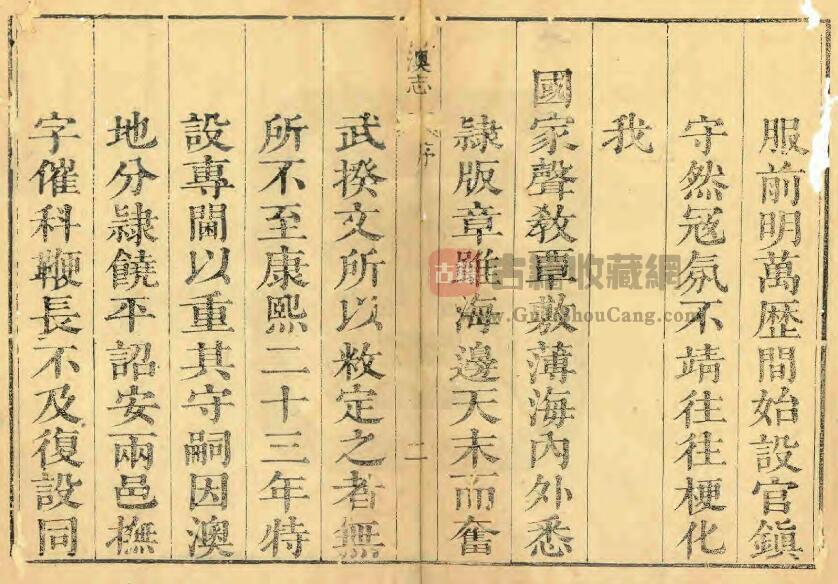 服前明萬歴間始設官鎮
守然冦氛不靖往往梗化
我
國家聲敎覃敷薄海內外悉
隷版章雖海邊天末而奮
澳志
序
二
武揆文所以敉定之者無
所不至康熙二十三年特
設專閫以重其守嗣因澳
地分隷饒平詔安兩邑撫
字催科鞭長不及復設同
古籍
古籍收藏網
www.GujiShouCang.com